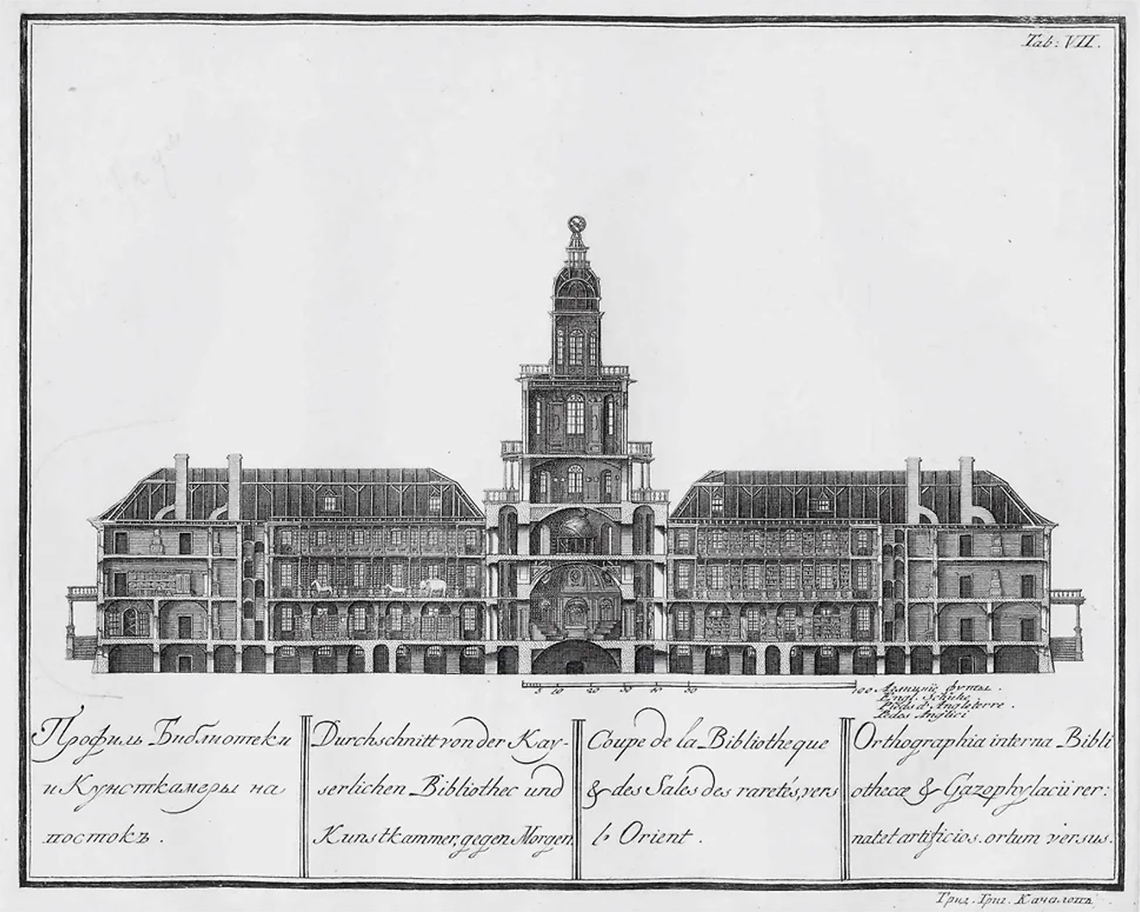 Tab: VII.
5 10 20 30 40 50 100
Аглицкїе футы.
Engl. Schuhe.
Pieds d'Angleterre.
Pedes Anglici
Профиль Библиотеки
и Кунсткамеры на
востокъ.
Durchschnitt von der Kay-
serlichen Bibliothec und
Kunstkammer, gegen Morgen.
Coupe de la Bibliotheque
& des Sales des raretés, vers
l'Orient.
Orthographia interna Bibli
othecæ & Gazophylacii rer:
nat et artificios. ortum versus.
Грид. Григ. Качаловъ